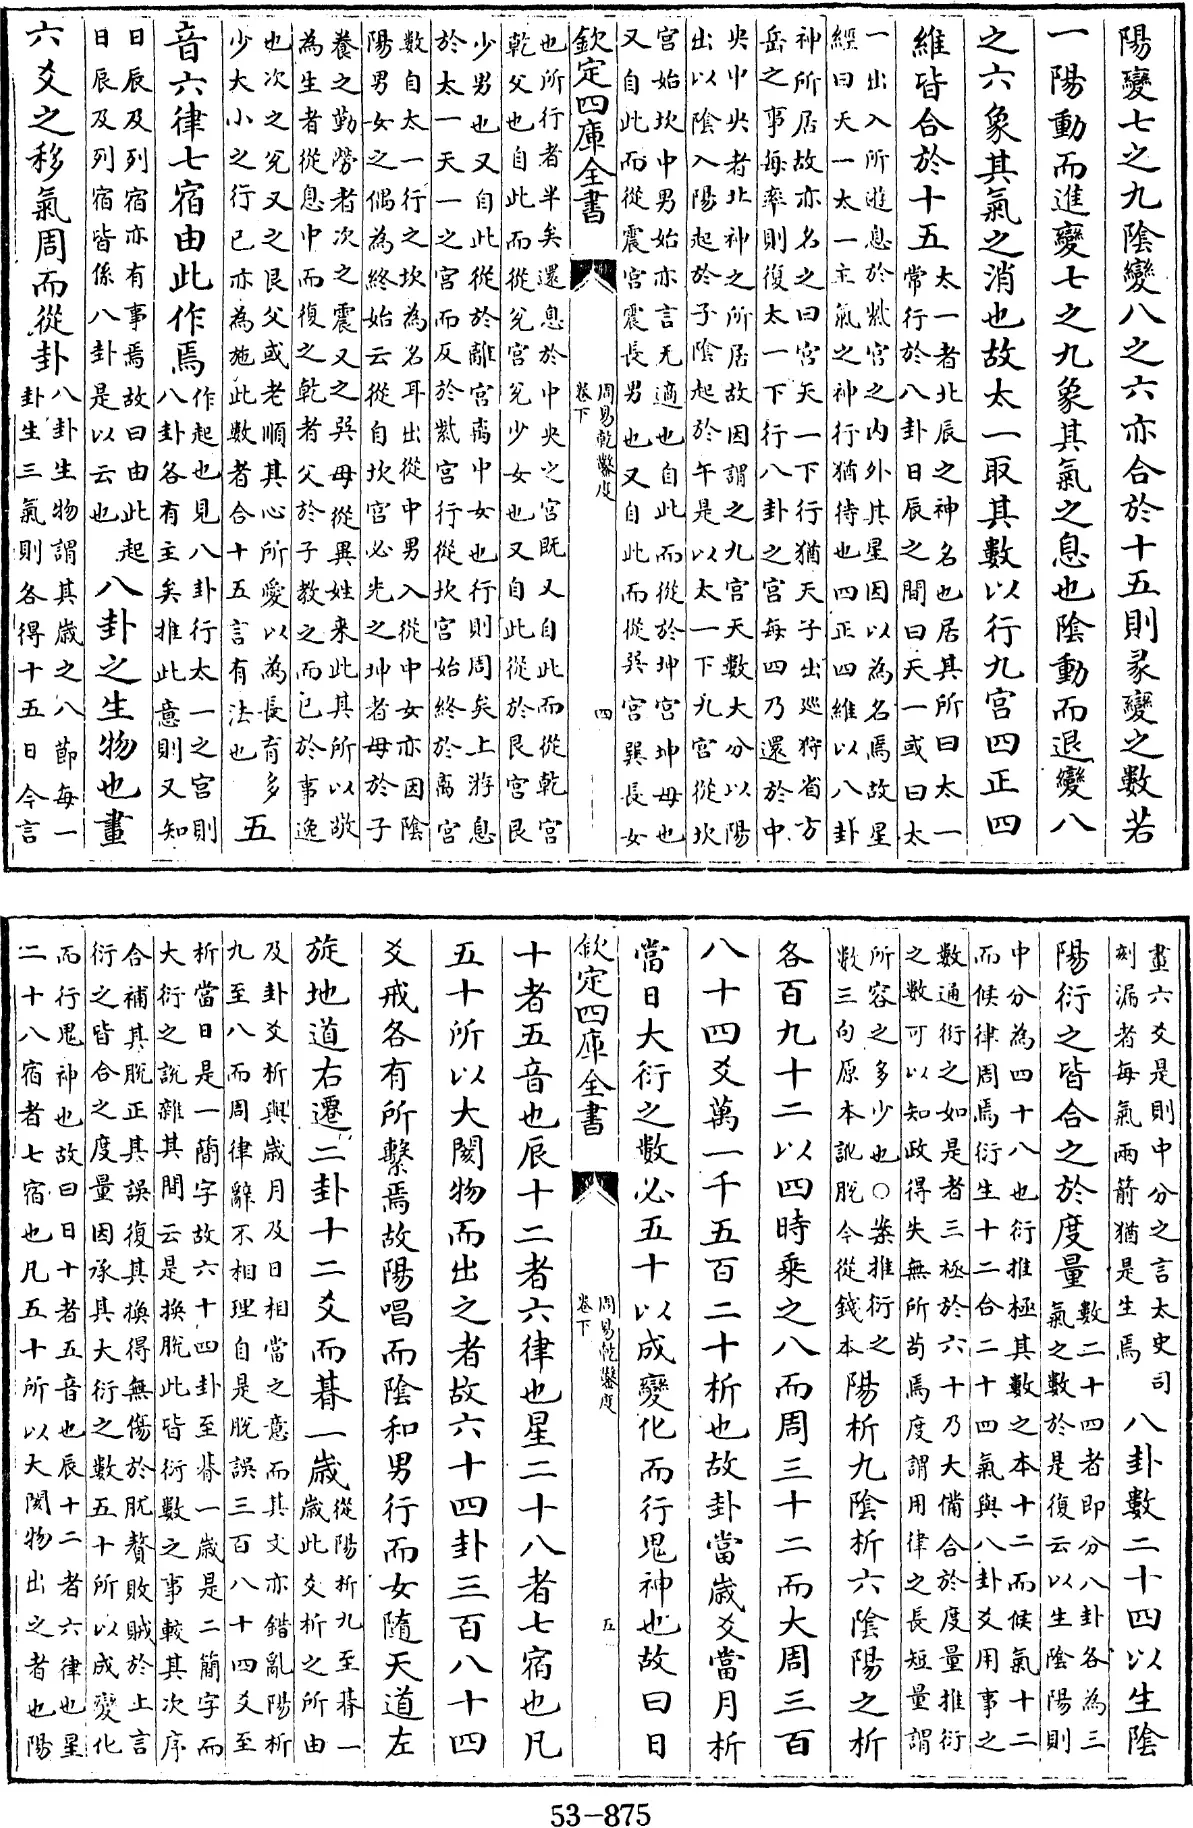 陽變七之九陰變八之六亦合於十五則彖變之數若
一陽動而進變七之九象其氣之息也陰動而退變八
之六象其氣之消也故太一取其數以行九宫四正四
維皆合於十五太一者北辰之神名也居其所曰太一
常行於八卦日辰之間曰天一或曰太
一出入所遊息於紫宫之内外其星因以為名焉故星
經曰天一太一主氣之神行猶待也四正四維以八卦
神所居故亦名之曰宫天一下行猶天子出廵狩省方
岳之事每率則復太一下行八卦之宫每四乃還於中
央中央者北神之所居故因謂之九宫天數大分以陽
出以陰入陽起於子陰起於午是以太一下九宫從坎
宫始坎中男始亦言无適也自此而從於坤宫坤母也
又自此而從震宫震長男也又自此而從巽宫巽長女
欽定四庫全書
周易乾鑿度
卷下
四
也所行者半矣還息於中央之宫既又自此而從乾宫
乾父也自此而從兊宫兊少女也又自此從於艮宫艮
少男也又自此從於離宫離中女也行則周矣上游息
於太一天一之宫而反於紫宫行從坎宫始終於離宫
數自太一行之坎為名耳出從中男入從中女亦因陰
陽男女之偶為終始云從自坎宫必先之坤者母於子
養之勤勞者次之震又之巽母從異姓来此其所以敬
為生者從息中而復之乾者父於子教之而已於事逸
也次之兊又之艮父或老順其心所愛以為長育多
少大小之行已亦為施此數者合十五言有法也五
音六律七宿由此作焉作起也見八卦行太一之宫則
八卦各有主矣推此意則又知
日辰及列宿亦有事焉故曰由此起
日辰及列宿皆係八卦是以云也八卦之生物也畫
六爻之移氣周而從卦八卦生物謂其歲之八節每一
卦生三氣則各得十五日今言
畫六爻是則中分之言太史司
刻漏者每氣兩箭猶是生焉八卦數二十四以生陰
陽衍之皆合之於度量數二十四者即分八卦各為三
氣之數於是復云以生陰陽則
中分為四十八也衍推極其數之本十二而候氣十二
而候律周焉衍生十二合二十四氣與八卦爻用事之
數通衍之如是者三極於六十乃大備合於度量推衍
之數可以知政得失無所苟焉度謂用律之長短量謂
所容之多少也○案推衍之
數三句原本訛脫今從錢本陽析九陰析六陰陽之析
各百九十二以四時乘之八而周三十二而大周三百
八十四爻萬一千五百二十析也故卦當歲爻當月析
當日大衍之數必五十以成變化而行鬼神也故曰日
欽定四庫全書
周易乾鑿度
卷下
五
十者五音也辰十二者六律也星二十八者七宿也凡
五十所以大閡物而出之者故六十四卦三百八十四
爻戒各有所繫焉故陽唱而陰和男行而女隨天道左
旋地道右遷二卦十二爻而朞一歲從陽析九至朞一
歲此爻析之所由
及卦爻析與歲月及日相當之意而其文亦錯亂陽析
九至八而周律辭不相理自是脫誤三百八十四爻至
析當日是一簡字故六十四卦至朞一歲是二簡字而
大衍之說雜其間云是換脫此皆衍數之事較其次序
合補其脫正其誤復其換得無傷於肬贅敗賊於上言
衍之皆合之度量因承其大衍之數五十所以成變化
而行鬼神也故曰日十者五音也辰十二者六律也星
二十八宿者七宿也凡五十所以大閡物出之者也陽
53-875